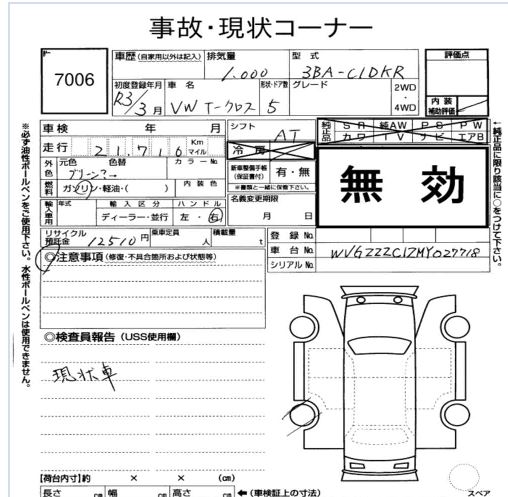 事故・現状コーナー
7006
車歴 (自家用以外は記入) 排気量 1.000 型式 3BA-C1DKR 評価点
初度登録年月 R3/3月 車名 VW T-クロス 形状・ドア数 5 グレード 2WD・4WD 内装補助評価
車検 年 月 シフト AT 純正品 SR 純AW PS PW
走行 21,716 Km マイル 冷房 カワ TV ナビ エアB
外色 元色 グリーン?→ 色替 カラーNo. 新車整備手帳(保証書付) 有・無
燃料 ガソリン・軽油・( ) 内装色 ※書類と一緒に保管下さい。
名義変更期限 月 日
無効
輸入車用 年式 輸入区分 ディーラー・並行 ハンドル 左・右
リサイクル預託金 12510円 乗車定員 人 積載量 t
登録No.
車台No. WVGZZZC1ZMY027718
シリアルNo.
◎注意事項 (修復・不具合箇所および状態等)
◎検査員報告 (USS使用欄)
現状車
【荷台内寸】約 × × (cm)
長さ cm 幅 cm 高さ cm ←(車検証上の寸法)
スペア
※必ず油性ボールペンをご使用下さい。水性ボールペンは使用できません。
←純正品に限り該当に○をつけて下さい。